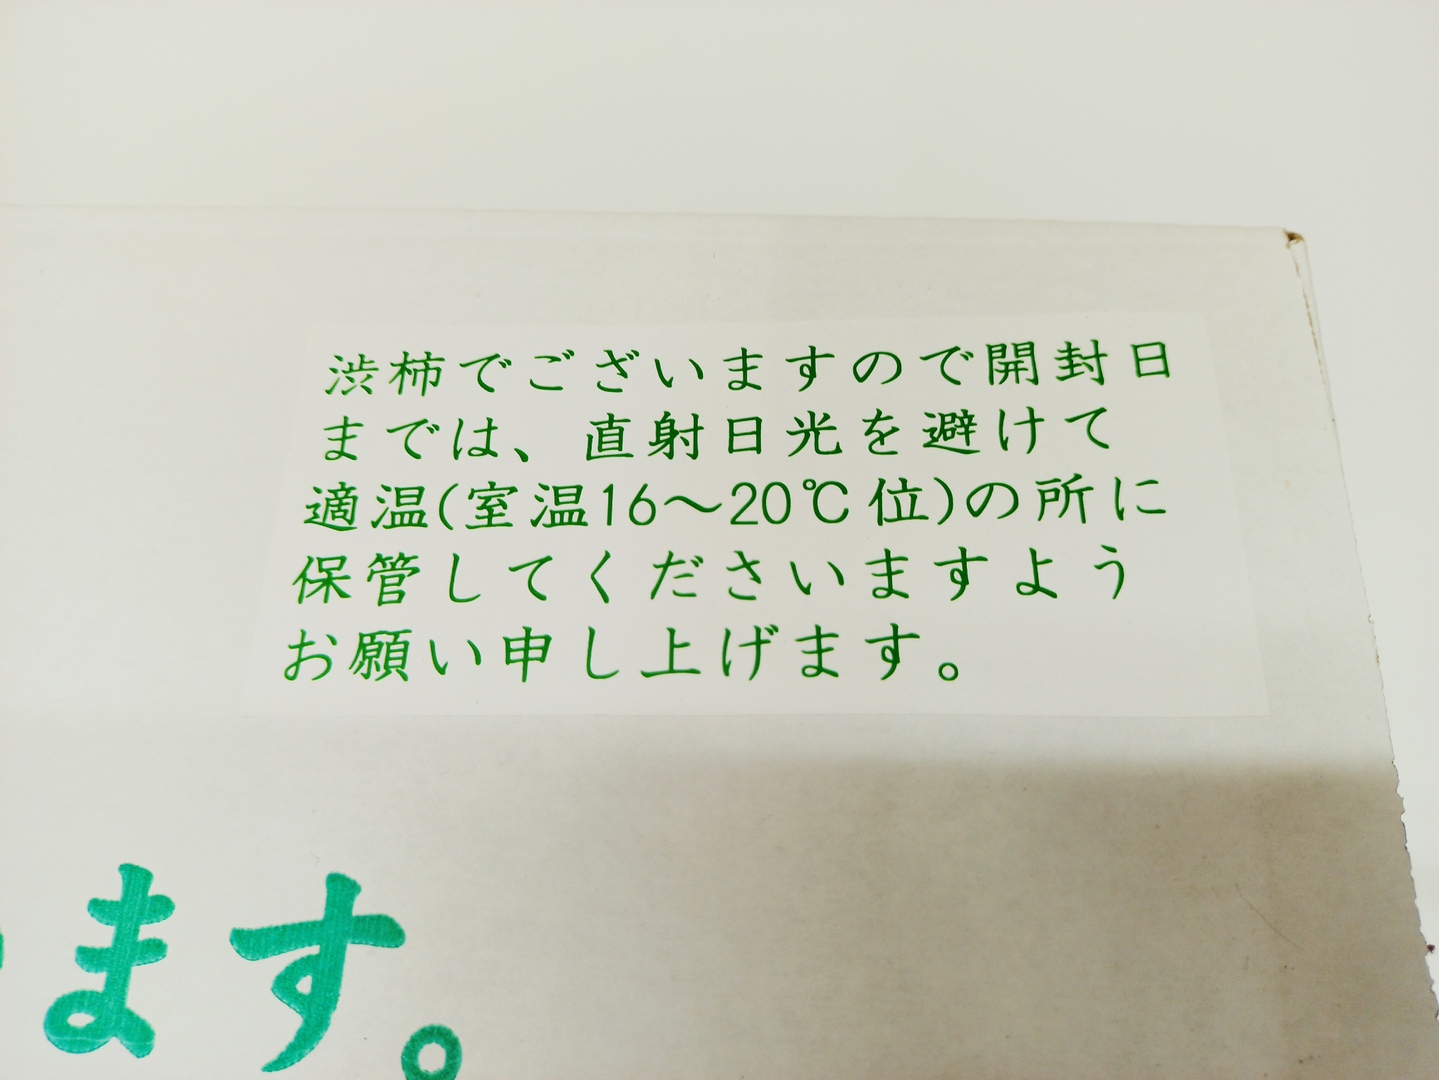 渋柿でございますので開封日
までは、直射日光を避けて
適温(室温16～20℃位)の所に
保管してくださいますよう
お願い申し上げます。
ます。